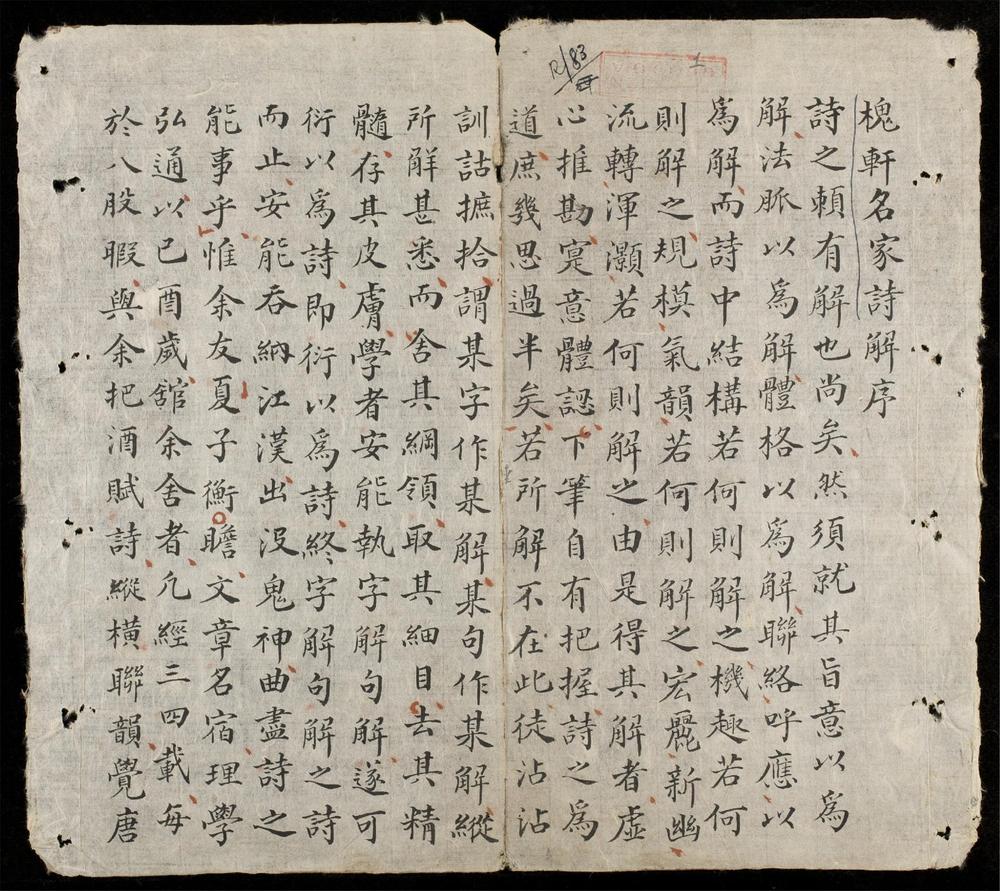 槐軒名家詩解序
詩之頼有解也尚矣然須就其旨意以為
解法脈以爲解體格以爲解聯絡呼應以
爲解而詩中結構若何則解之機趣若何
則解之規模氣韻若何則解之宏麗新幽
流轉渾灝若何則解之由是得其解者虛
心推勘寔意體認下筆自有把握詩之爲
道庶幾思過半矣若所解不在此徒沾沾
訓詁摭拾謂某字作某解某句作某解縱
所解甚悉而舍其綱領取其細目去其精
髓存其皮膚學者安能執字解句解遂可
衍以爲詩即衍以爲詩終字解句解之詩
而止安能吞納江漢出没鬼神曲盡詩之
能事乎惟余友夏子衡瞻文章名宿理學
弘通以已酉歲舘余舍者凡經三四載每
於八股暇與余把酒賦詩縱橫聯韻覺唐
R/83
1